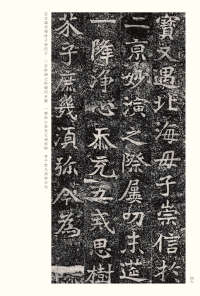 寶又遇北海母子崇信於
二京妙演之際屢叨末莚
一降净心忝充五戒思樹
芥子庶幾須弥今為